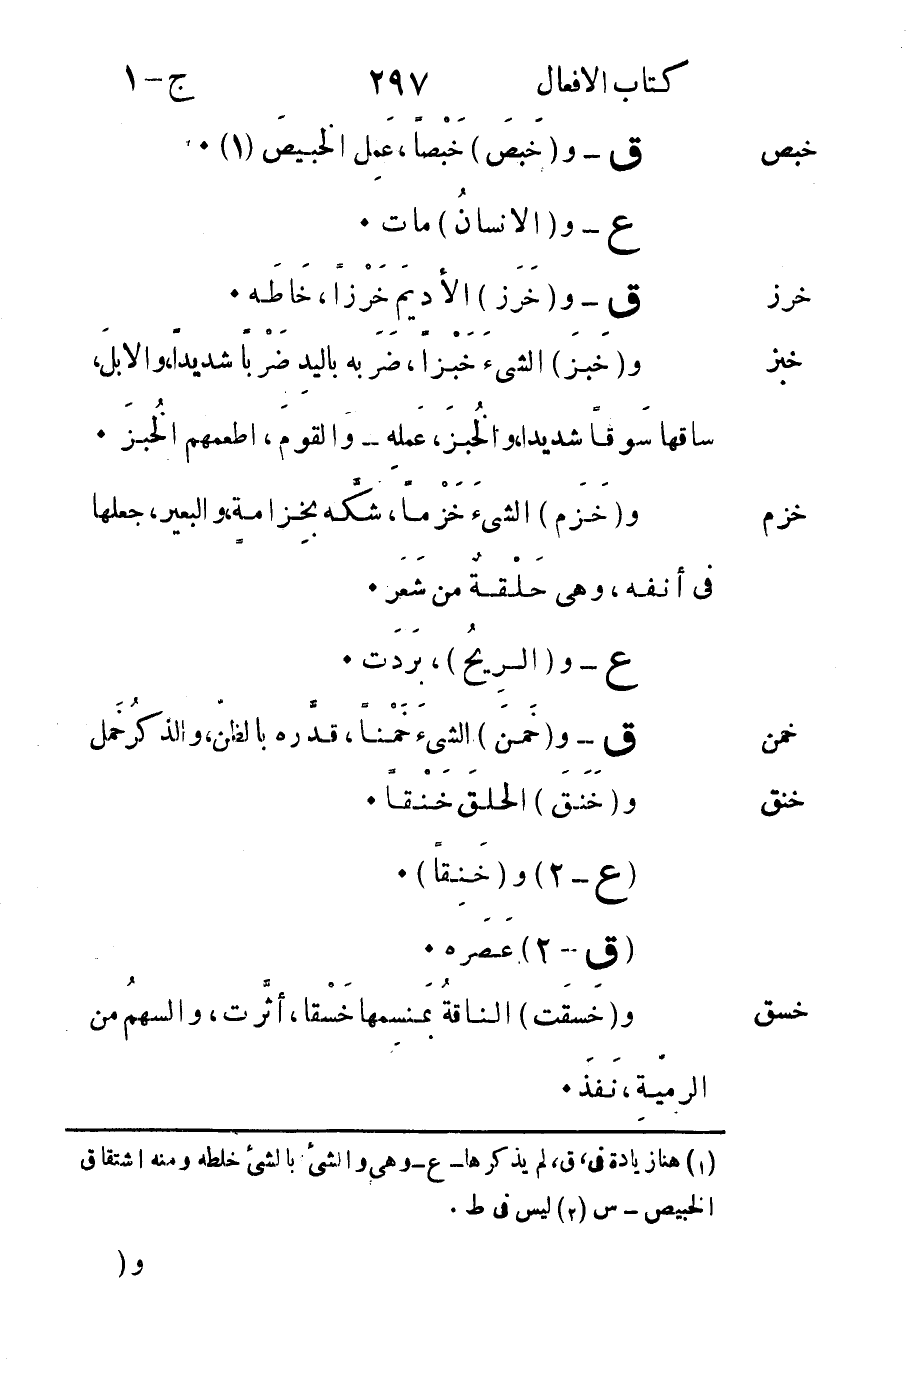 كتاب الافعال ٢٩٧ ج – ١
خبص ق – و (خَبَصَ) خَبْصاً، عَمِل الخبيصَ (١) •
ع – و (الانسانُ) مات •
خرز ق – و (خَرَز) الأديمَ خَرْزاً، خَاطَه •
خبز و (خَبَز) الشىءَ خَبْزاً، ضَرَبه باليدِ ضَرْباً شديداً، والابلَ،
ساقها سَوقاً شديدا، والخُبزَ، عَمِله – والقومَ، اطعمهم الخُبزَ •
خزم و (خَزَم) الشىءَ خَزْماً، شكَّه بِخِزامةٍ، والبعير، جعلها
فى أنفه، وهى حَلْقةٌ من شَعَر •
ع – و (الرِيحُ)، بَرَدَت •
خمن ق – و (خَمَنَ) الشىءَ خَمْناً، قدَّره بالظنّ، والذكرُ خَمَل
خنق و (خَنَقَ) الحلقَ خَنْقاً •
(ع – ٢) و (خَنِقاً) •
(ق – ٢) عَصَره •
خسق و (خَسَقَت) الناقةُ بمَنسِمها خَسْقا، أثَّرت، والسهمُ من
الرمِيّةِ، نَفَذَ •
(١) هنا زيادة فى، ق، لم يذكرها – ع – وهى و الشئَ بالشئ خلطه ومنه اشتقاق
الخبيص – س (٢) ليس فى ط •
و (